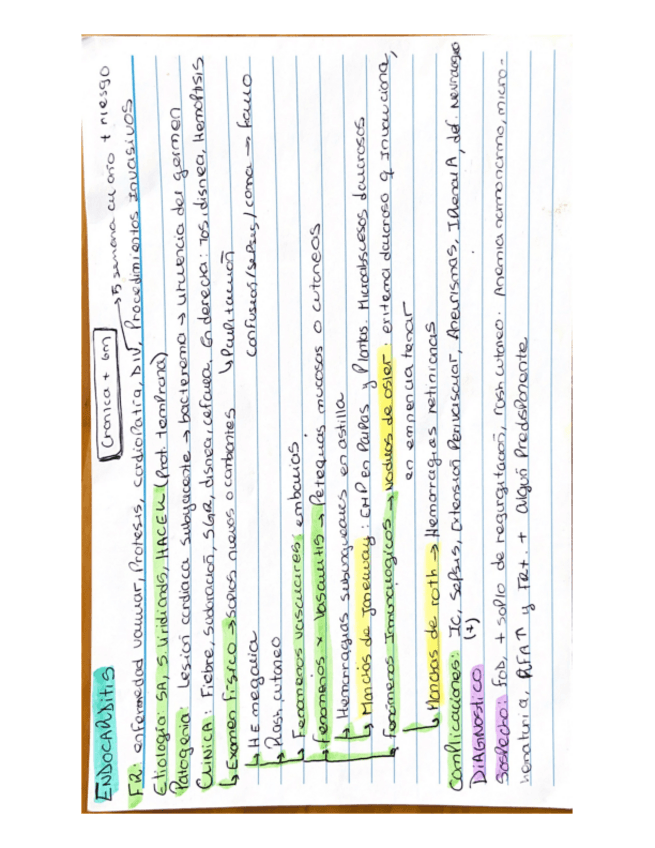 ENDOCARDITIS
Cronica + 6m
→ 5 semana al año + riesgo
FR: enfermedad valvular, Protesis, cardiopatia, DIV, Procedimientos invasivos
Etiologia: SA, S. Viridiands, HACEK (Prot. temprana)
Patogenia: Lesion cardiaca subyacente → bacteremia → virulencia del germen
CLINICA: Fiebre, sudoración, SGR, disnea, cefalea. En derecha: Tos, disnea, Hemoptisis
↳ Examen Fisico → Soplos nuevos o carbantes ↳ Palpitación
↳ HE megalia confusion/sepsis/coma →
↳ Rash cutaneo
↳ Fenomenos vasculares: embolias
↳ Fenomenos x vasculitis → Petequias mucosas o cutaneas
↳ Hemorragias subungueales en astilla
↳ Manchas de Janeway: EMP en Palpas y Plantas. Microabscesos dolorosos
↳ Fenomenos Inmunologicos → Nodulos de osler: eritema doloroso q involuciona,
en eminencia tenar
↳ Manchas de roth → Hemorragias retinianas
Complicaciones: IC, Sepsis, Extension Perivalvular, Aneurismas, IRenal A, def. Neurologo
DIAGNOSTICO (+)
Sospecha: FOD, + soplo de regurgitación, rash cutaneo. Anemia normo normo, micro-
hematuria, RFA↑ y FR+. + algun Predisponente